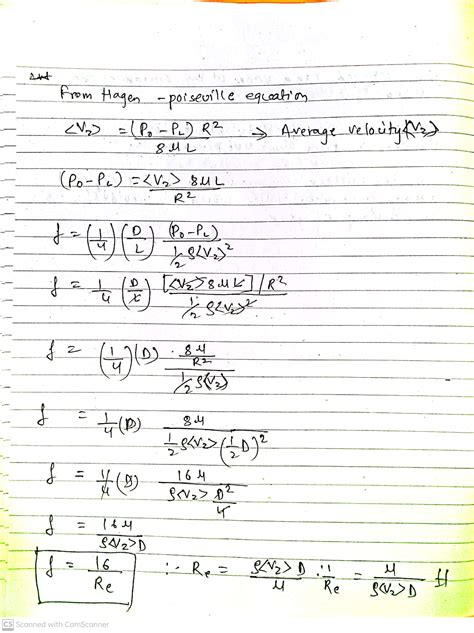 From Hagen - poiseville equation
<V₂> = (P₀ - P_L) R² / 8 μ L → Average velocity <V₂>
(P₀ - P_L) = <V₂> 8 μ L / R²
f = (1/4) (D/L) (P₀ - P_L) / 1/2 ρ<V₂>²
f = 1/4 (D/L) [<V₂> 8 μ L] / R² / 1/2 ρ<V₂>²
f = (1/4) (D) · 8 μ / R² / 1/2 ρ<V₂>
f = 1/4 (D) 8 μ / 1/2 ρ<V₂> (1/2 D)²
f = 1/4 (D) 16 μ / ρ<V₂> D²/4
f = 16 μ / ρ<V₂> D
f = 16 / Re ∵ Re = ρ<V₂> D / μ ∴ 1/Re = μ / ρ<V₂> D
CS Scanned with CamScanner